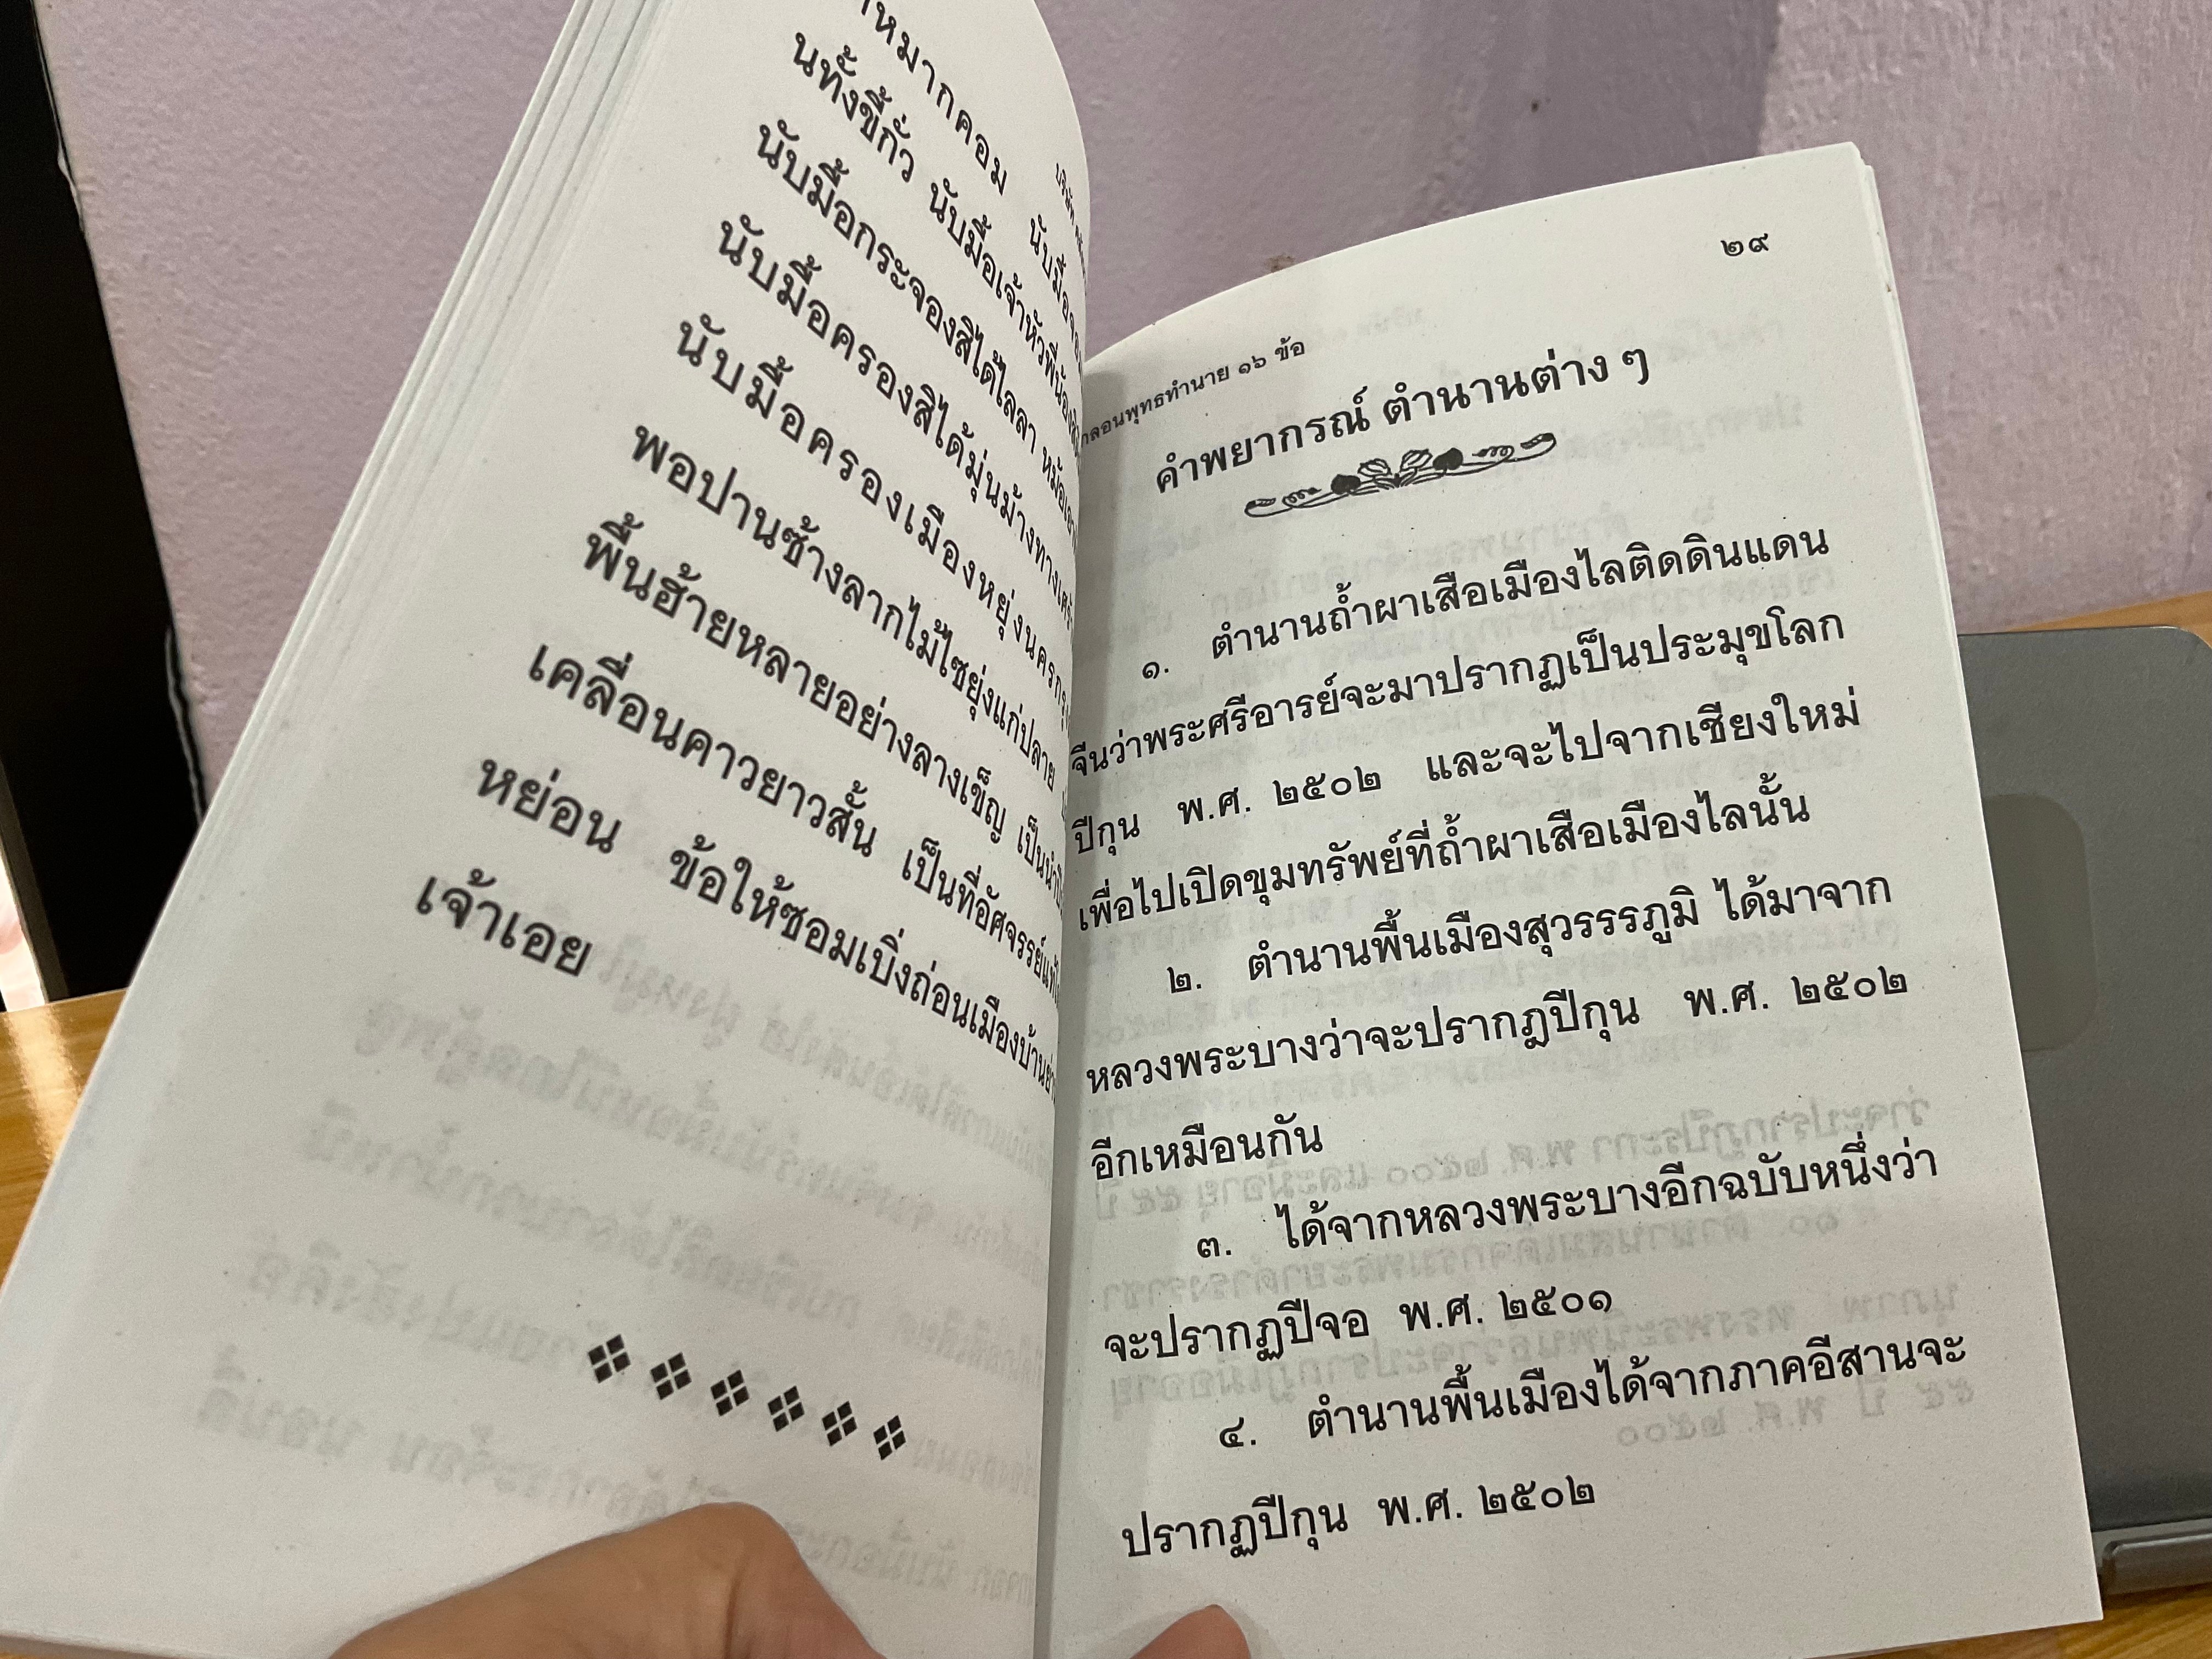 หมากคอม นับมื้อ
นทั้งขี้กั่ว นับมื้อเจ้าหัวพี่น้อง
นับมื้อกระจองสิได้ไลลา หม้อ
นับมื้อครองสิได้มุ่นม้างทาง
นับมื้อครองเมืองหยุ่งนคร
พอปานช้างลากไม้ไซยุ่งแก่ปลาย
พื้นฮ้ายหลายอย่างลางเข็ญ
เคลื่อนคาวยาวสั้น เป็นที่อัศจรรย์
หย่อน ข้อให้ซอมเบิ่งถ่อนเมืองบ้าน
เจ้าเอย
๒๙
กลอนพุทธทำนาย ๑๖ ข้อ
คำพยากรณ์ ตำนานต่าง ๆ
๑. ตำนานถ้ำผาเสือเมืองไลติดดินแดน
จีนว่าพระศรีอารย์จะมาปรากฏเป็นประมุขโลก
ปีกุน พ.ศ. ๒๕๐๒ และจะไปจากเชียงใหม่
เพื่อไปเปิดขุมทรัพย์ที่ถ้ำผาเสือเมืองไลนั้น
๒. ตำนานพื้นเมืองสุวรรรภูมิ ได้มาจาก
หลวงพระบางว่าจะปรากฏปีกุน พ.ศ. ๒๕๐๒
อีกเหมือนกัน
๓. ได้จากหลวงพระบางอีกฉบับหนึ่งว่า
จะปรากฏปีจอ พ.ศ. ๒๕๐๑
๔. ตำนานพื้นเมืองได้จากภาคอีสานจะ
ปรากฏปีกุน พ.ศ. ๒๕๐๒